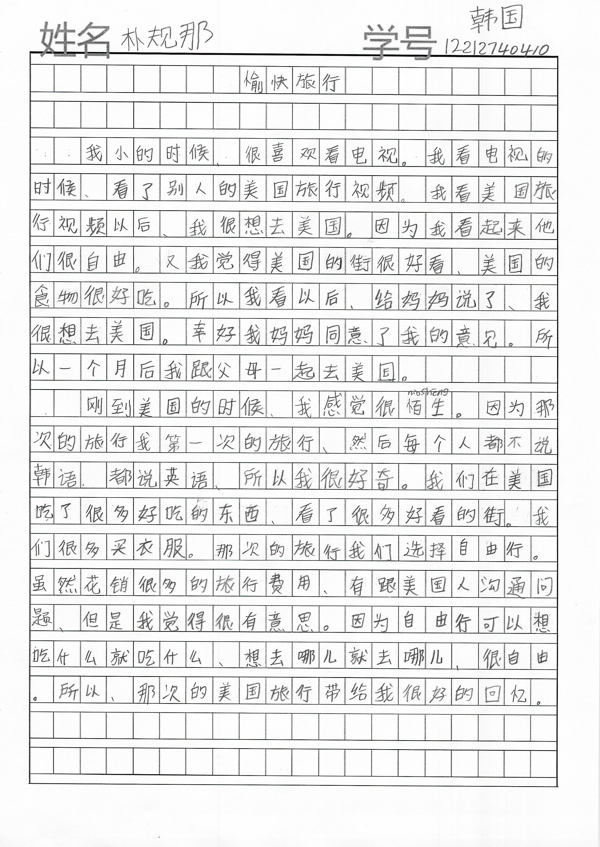 韩国
姓名 朴规那 学号 12212740410
愉快旅行
我小的时候、很喜欢看电视。我看电视的
时候、看了别人的美国旅行视频。我看美国旅
行视频以后、我很想去美国。因为我看起来他
们很自由。又我觉得美国的街很好看、美国的
食物很好吃。所以我看以后、给妈妈说了、我
很想去美国。幸好我妈妈同意了我的意见。所
以一个月后我跟父母一起去美国。
mosheng
刚到美国的时候、我感觉很陌生。因为那
次的旅行我第一次的旅行、然后每个人都不说
韩语、都说英语、所以我很好奇。我们在美国
吃了很多好吃的东西、看了很多好看的街。我
们很多买衣服。那次的旅行我们选择自由行。
虽然花销很多的旅行费用、有跟美国人沟通问
题、但是我觉得很有意思。因为自由行可以想
吃什么就吃什么、想去哪儿就去哪儿、很自由
。所以、那次的美国旅行带给我很好的回忆。